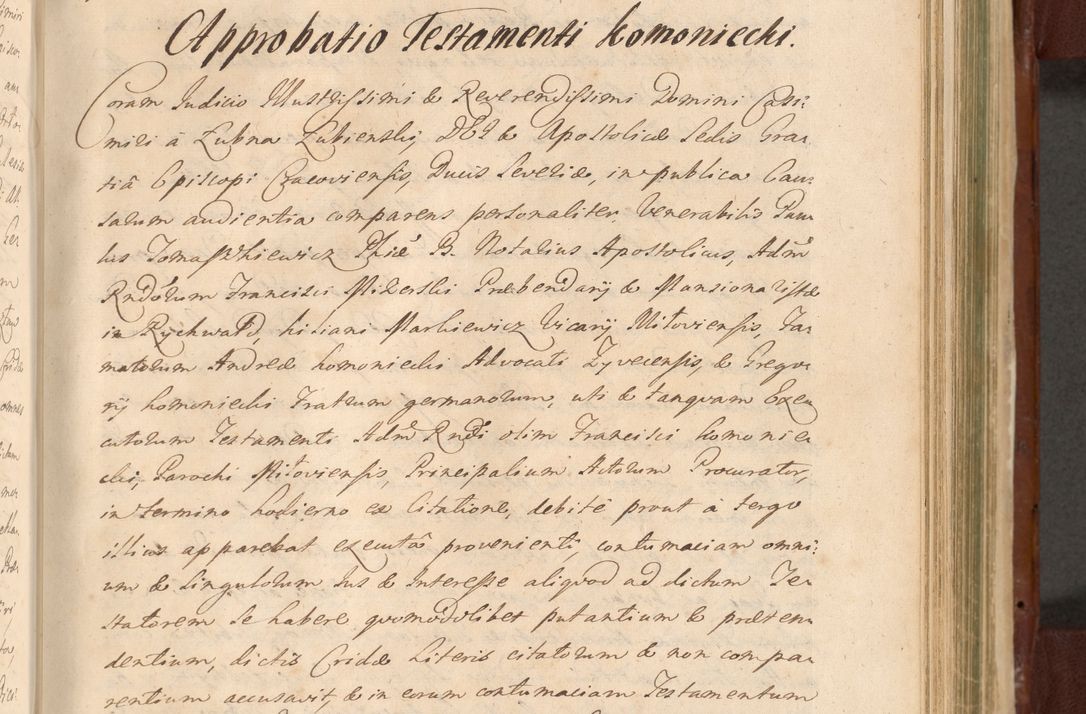 Approbatio Testamenti Komoniecki.
Coram Judicio Illustrissimi & Reverendissimi Domini Casi:
miri à Łubna Łubienskij DEI & Apostolicæ Sedis Gra:
tiâ Episcopi Cracoviensis, Ducis Severiæ, in publica Cau:
sarum audientia comparens personaliter Venerabilis Pau
lus Tomaszkiewicz B. Notarius Apostolicus, Admͩ
Rndorum Francisci Præbendarij & Mansionaristæ
in Rychwałd, Markiewicz Vicarij Miloviensis, Fa:
matorum Andreæ Komoniecki Advocati Zyvecensis, & Grego
rij Komoniecki Fratrum germanorum, uti & tanquam Exe
cutorum Testamenti Admͩ Rndi olim Francisci Komonie
cki, Parochi Miloviensis, Principalium Actorum Procurator,
in termino hodierno ex Citatione, debitè prout à tergo
illius apparebat executâ provenienti, contumaciam omni:
um & singulorum Jus & Interesse aliquod ad dictum Te
statorem se habere quomodolibet putantium & præten
dentium, dictis Cridæ Literis citatorum & non compa
rentium accusavit, & in eorum contumaciam Testamentum